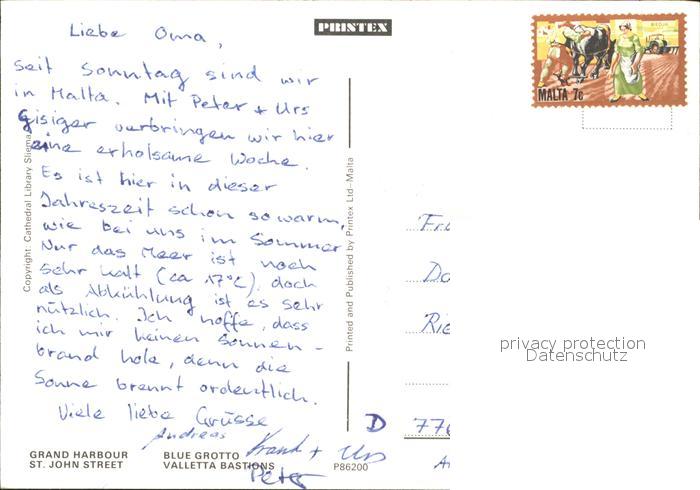 PRINTEX
Liebe Oma,
seit Sonntag sind wir
in Malta. Mit Peter + Urs
Gisiger verbringen wir hier
eine erholsame Woche.
Es ist hier in dieser
Jahreszeit schon so warm,
wie bei uns im Sommer
Nur das Meer ist noch
sehr kalt (ca 17°C), doch
als Abkühlung ist es sehr
nützlich. Ich hoffe, dass
ich mir keinen Sonnen-
brand hole, denn die
Sonne brennt ordentlich.
Viele liebe Grüsse
Andreas
+ Urs
Peter
GRAND HARBOUR
ST. JOHN STREET
BLUE GROTTO
VALLETTA BASTIONS
P86200
Copyright: Cathedral Library Sliema
Printed and Published by Printex Ltd-Malta
MALTA 7c
Do
Rie
D 776
privacy protection
Datenschutz